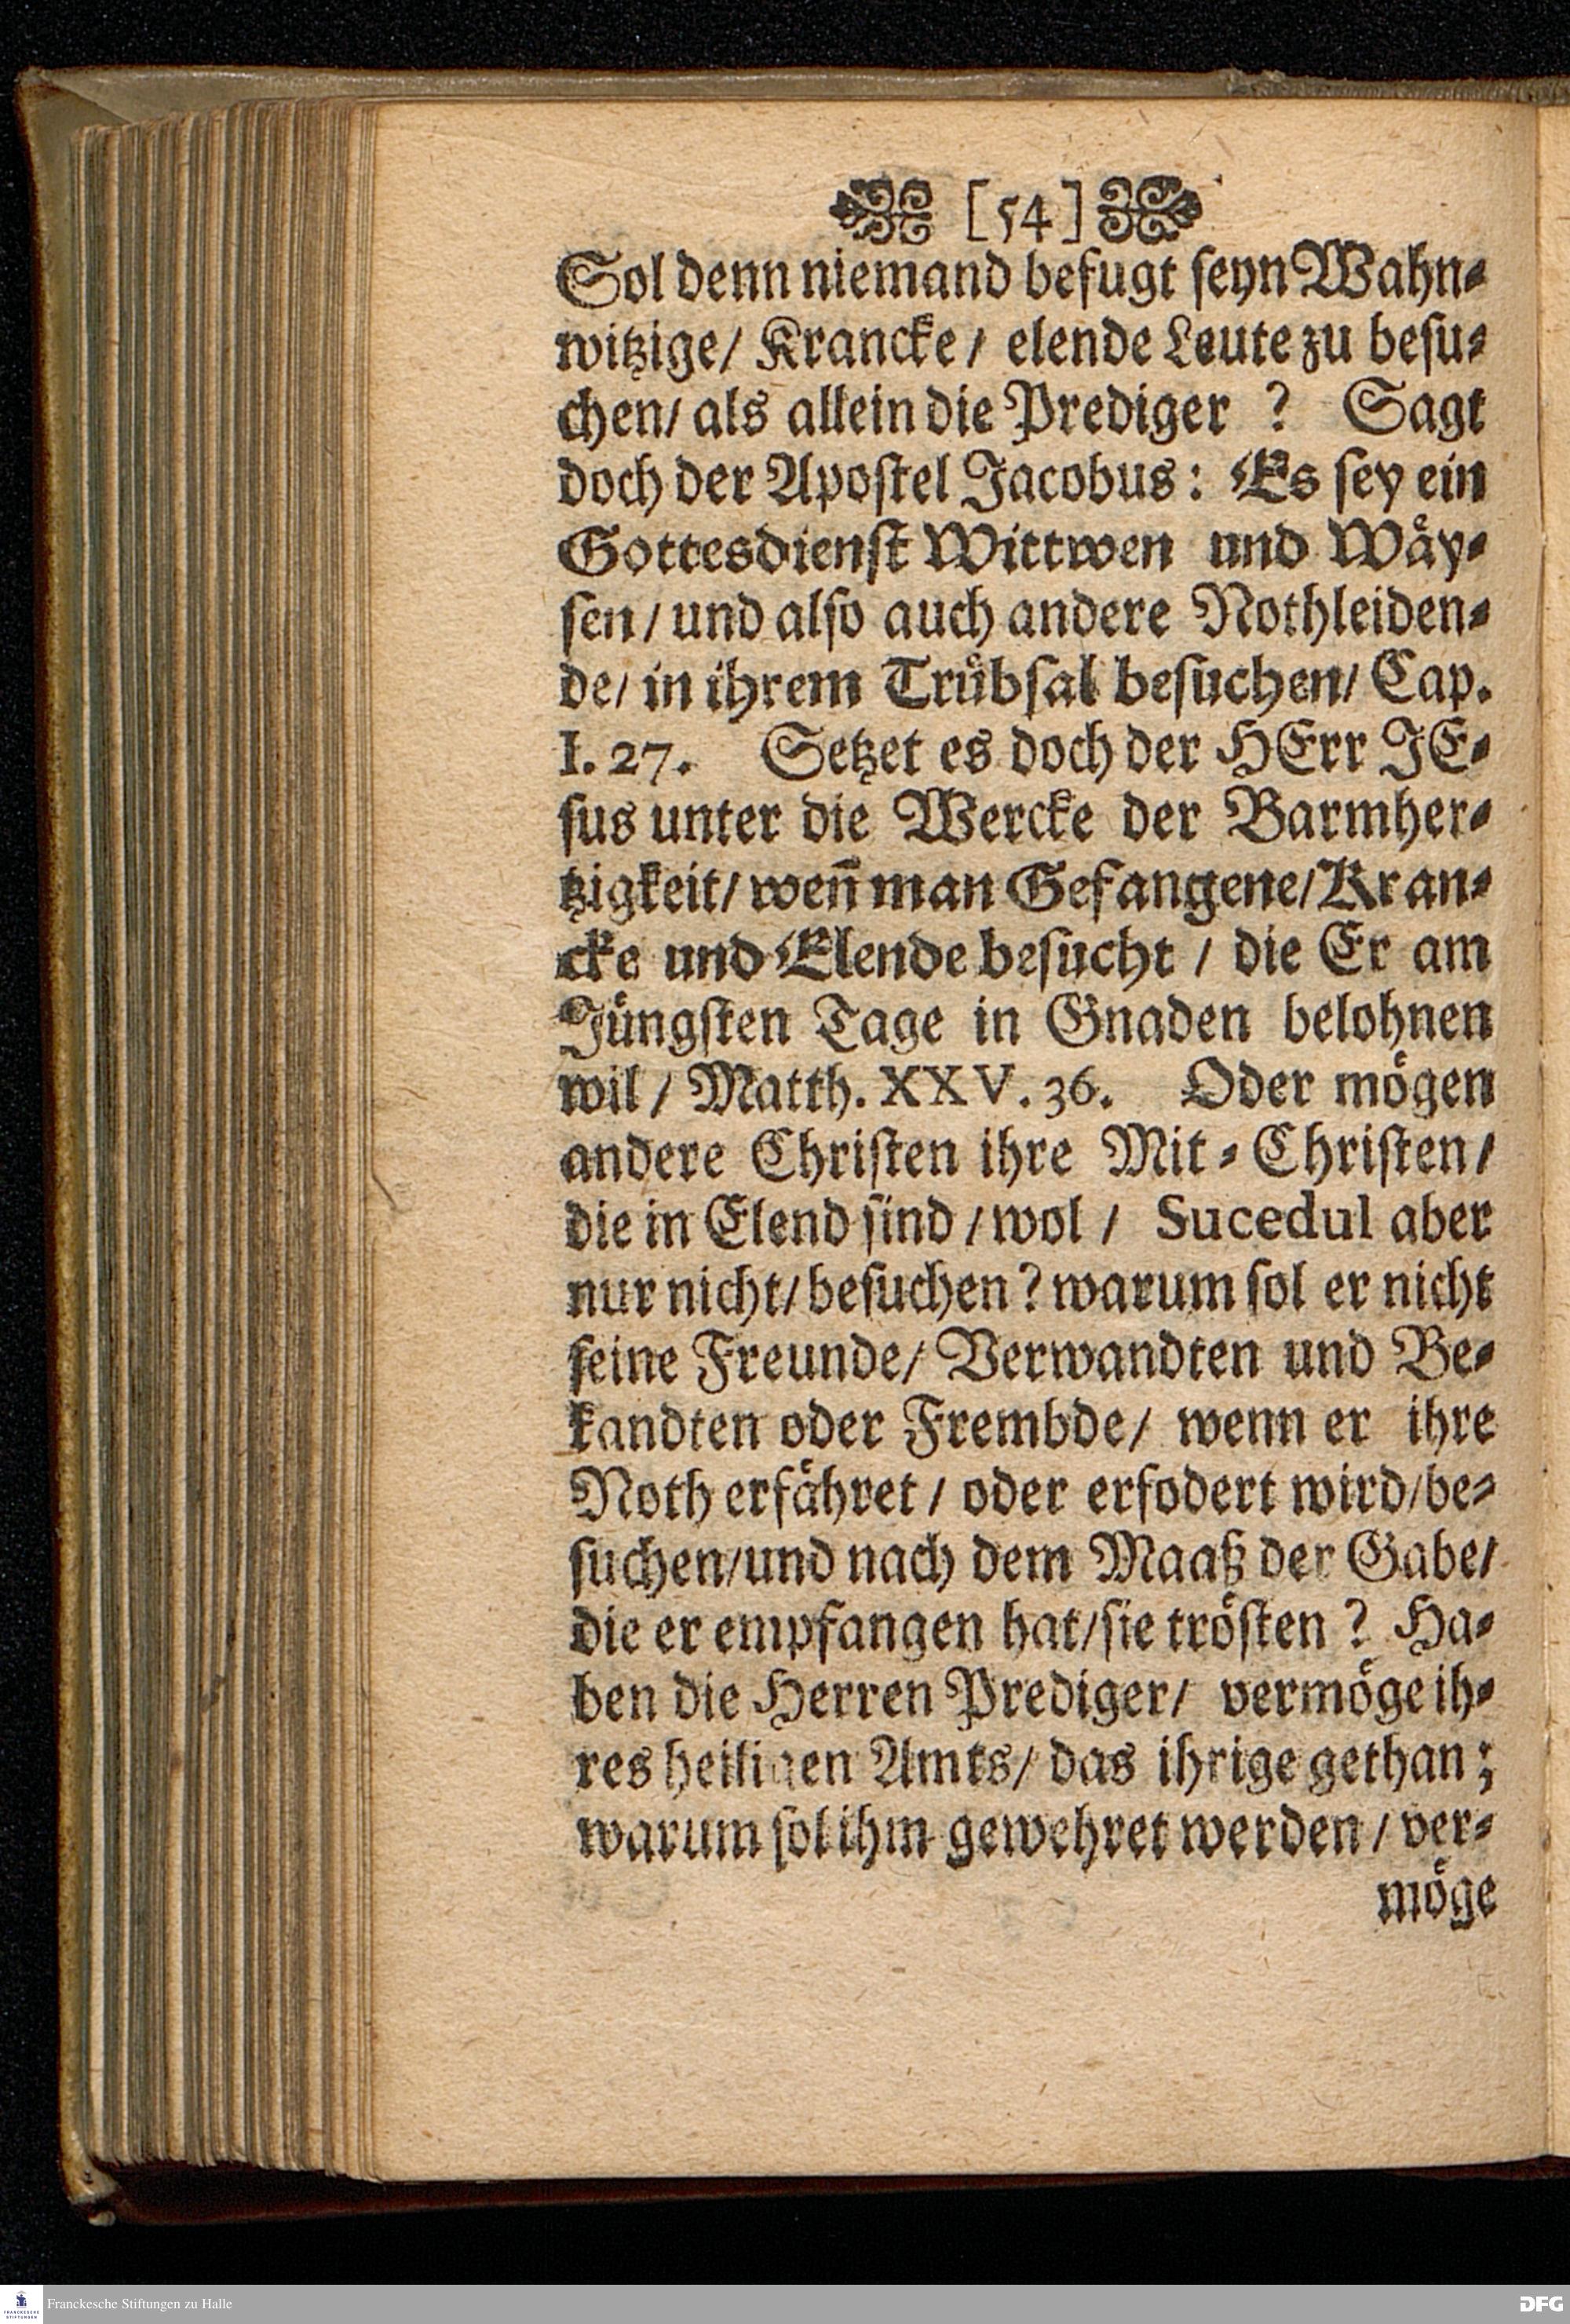 [54]
Sol denn niemand befugt seyn Wahn-
witzige/ Krancke/ elende Leute zu besu-
chen/ als allein die Prediger ? Sagt
doch der Apostel Jacobus: Es sey ein
Gottesdienst Wittwen und Wäy-
sen/ und also auch andere Nothleiden-
de/ in ihrem Trübsal besuchen/ Cap.
I. 27. Setzet es doch der HErr JE-
sus unter die Wercke der Barmher-
tzigkeit/ weñ man Gefangene/ Kran-
cke und Elende besucht / die Er am
Jüngsten Tage in Gnaden belohnen
wil / Matth. XXV. 36. Oder mögen
andere Christen ihre Mit-Christen/
die in Elend sind / wol / Sucedul aber
nur nicht/ besuchen? warum sol er nicht
seine Freunde/ Verwandten und Be-
kandten oder Frembde/ wenn er ihre
Noth erfähret / oder erfodert wird/ be-
suchen/ und nach dem Maaß der Gabe/
die er empfangen hat/ sie trösten ? Ha-
ben die Herren Prediger/ vermöge ih-
res heiligen Amts/ das ihrige gethan;
warum sol ihm gewehret werden / ver-
möge
FRANCKESCHE STIFTUNGEN
Franckesche Stiftungen zu Halle
DFG